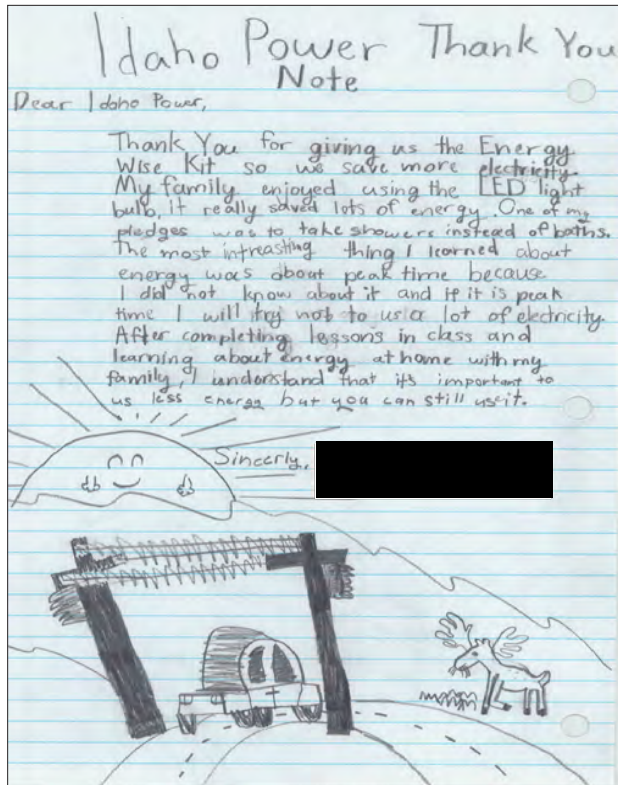 Idaho Power Thank You
Note
Dear Idaho Power,
Thank You for giving us the Energy
Wise Kit so we save more electricity.
My family enjoyed using the LED light
bulb, it really saved lots of energy. One of my
pledges was to take showers instead of baths.
The most intreasting thing I learned about
energy was about peak time because
I did not know about it and if it is peak
time I will try not to us a lot of electricity.
After completing lessons in class and
learning about energy at home with my
family, I understand that it's important to
us less energy but you can still use it.
Sincerly,